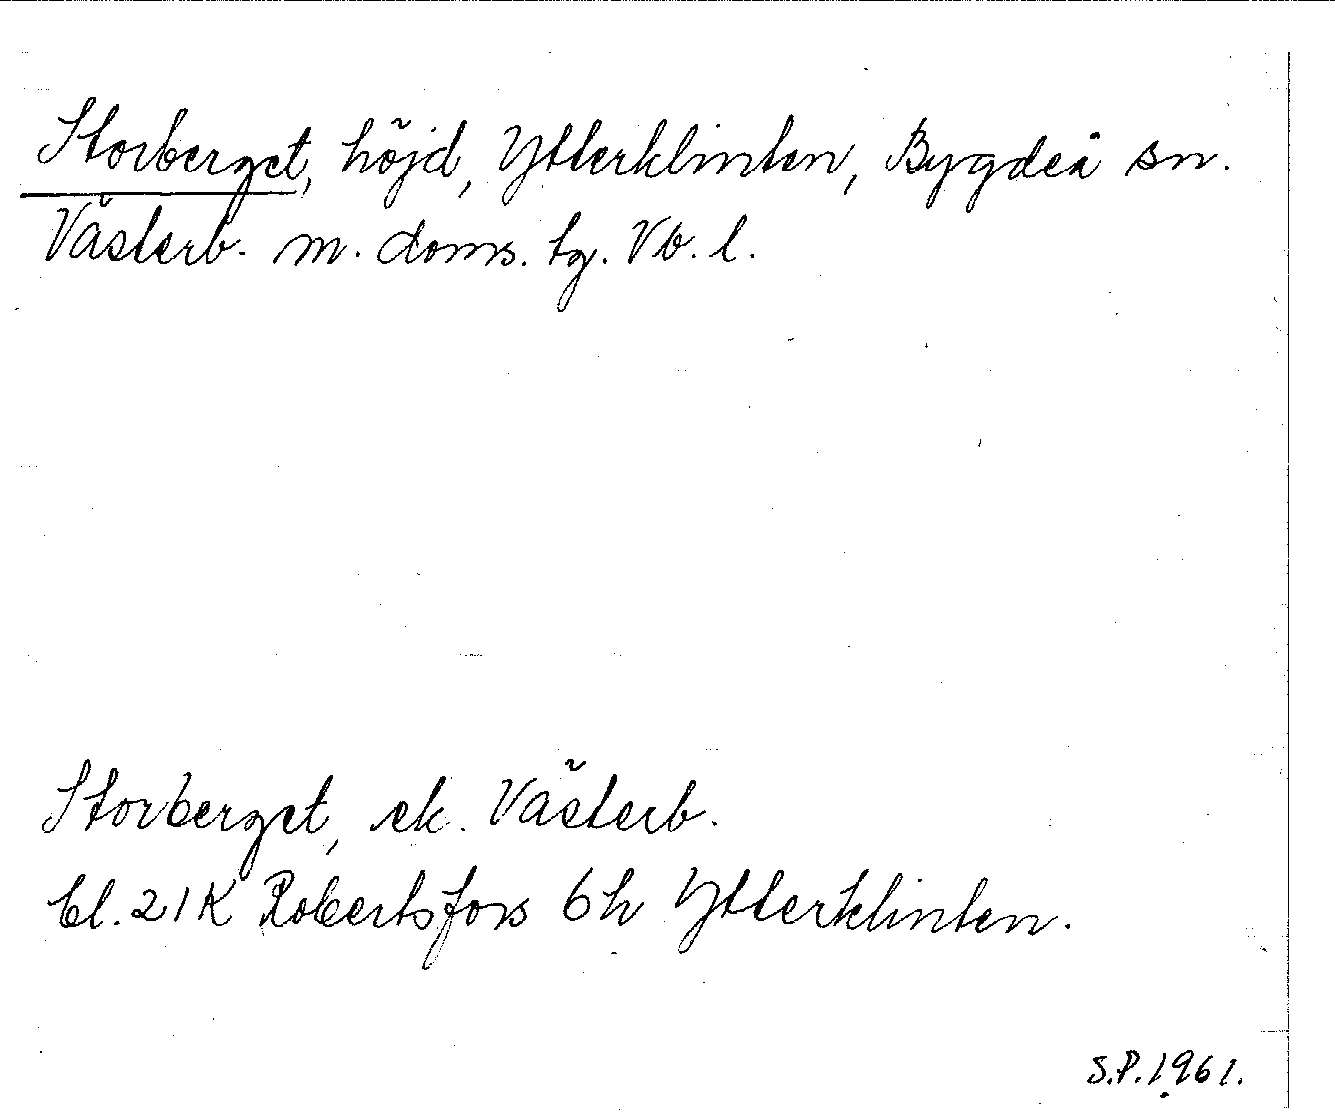 Storberget, höjd, Ytterklinten, Bygdeå sn.
Västerb. m. doms. tg. Vb. l.
Storberget, ek. Västerb.
bl. 21K Robertsfors 6h Ytterklinten.
S.P. 1961.